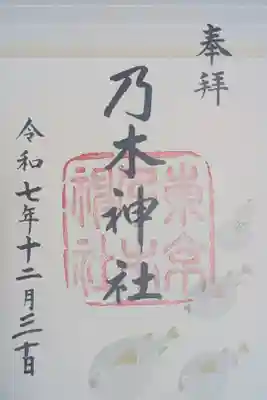 奉拝
乃木神社
東京
乃木
神社
令和七年十二月三十日